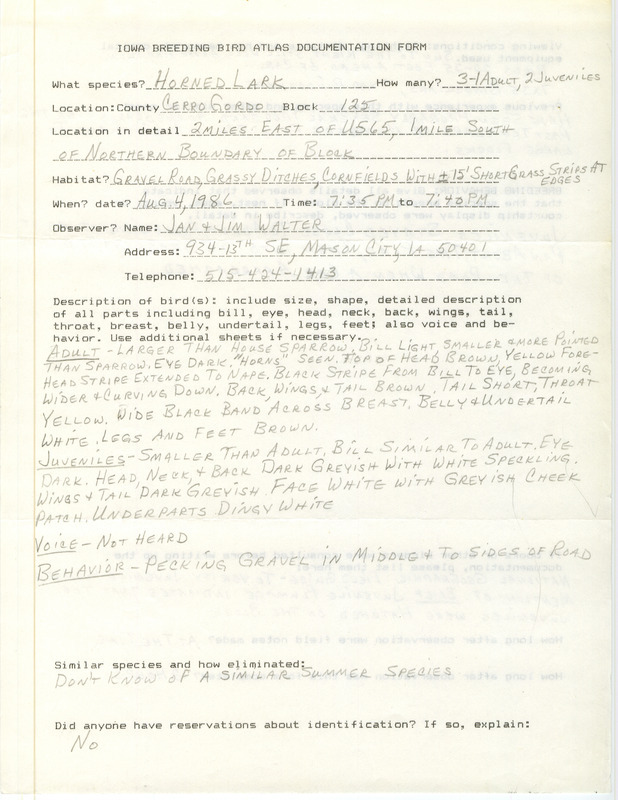 IOWA BREEDING BIRD ATLAS DOCUMENTATION FORM
What species? HORNED LARK How many? 3-1 ADULT, 2 JUVENILES
Location: County CERRO GORDO Block 125
Location in detail 2 MILES EAST OF US 65, 1 MILE SOUTH
OF NORTHERN BOUNDARY OF BLOCK
Habitat? GRAVEL ROAD, GRASSY DITCHES, CORNFIELDS WITH ± 15' SHORT GRASS STRIPS AT
EDGES
When? date? AUG. 4, 1986 Time: 7:35 PM to 7:40 PM
Observer? Name: JAN & JIM WALTER
Address: 934-13TH SE, MASON CITY, IA 50401
Telephone: 515-424-1413
Description of bird(s): include size, shape, detailed description
of all parts including bill, eye, head, neck, back, wings, tail,
throat, breast, belly, undertail, legs, feet; also voice and be-
havior. Use additional sheets if necessary.
ADULT - LARGER THAN HOUSE SPARROW, BILL LIGHT SMALLER & MORE POINTED
THAN SPARROW. EYE DARK. "HORNS" SEEN. TOP OF HEAD BROWN, YELLOW FORE-
HEAD STRIPE EXTENDED TO NAPE. BLACK STRIPE FROM BILL TO EYE, BECOMING
WIDER & CURVING DOWN. BACK, WINGS, & TAIL BROWN, TAIL SHORT, THROAT
YELLOW. WIDE BLACK BAND ACROSS BREAST. BELLY & UNDERTAIL
WHITE. LEGS AND FEET BROWN.
JUVENILES - SMALLER THAN ADULT. BILL SIMILAR TO ADULT. EYE
DARK. HEAD, NECK, & BACK DARK GREYISH WITH WHITE SPECKLING.
WINGS & TAIL DARK GREYISH. FACE WHITE WITH GREYISH CHEEK
PATCH. UNDERPARTS DINGY WHITE
VOICE - NOT HEARD
BEHAVIOR - PECKING GRAVEL IN MIDDLE & TO SIDES OF ROAD
Similar species and how eliminated:
DON'T KNOW OF A SIMILAR SUMMER SPECIES
Did anyone have reservations about identification? If so, explain:
NO